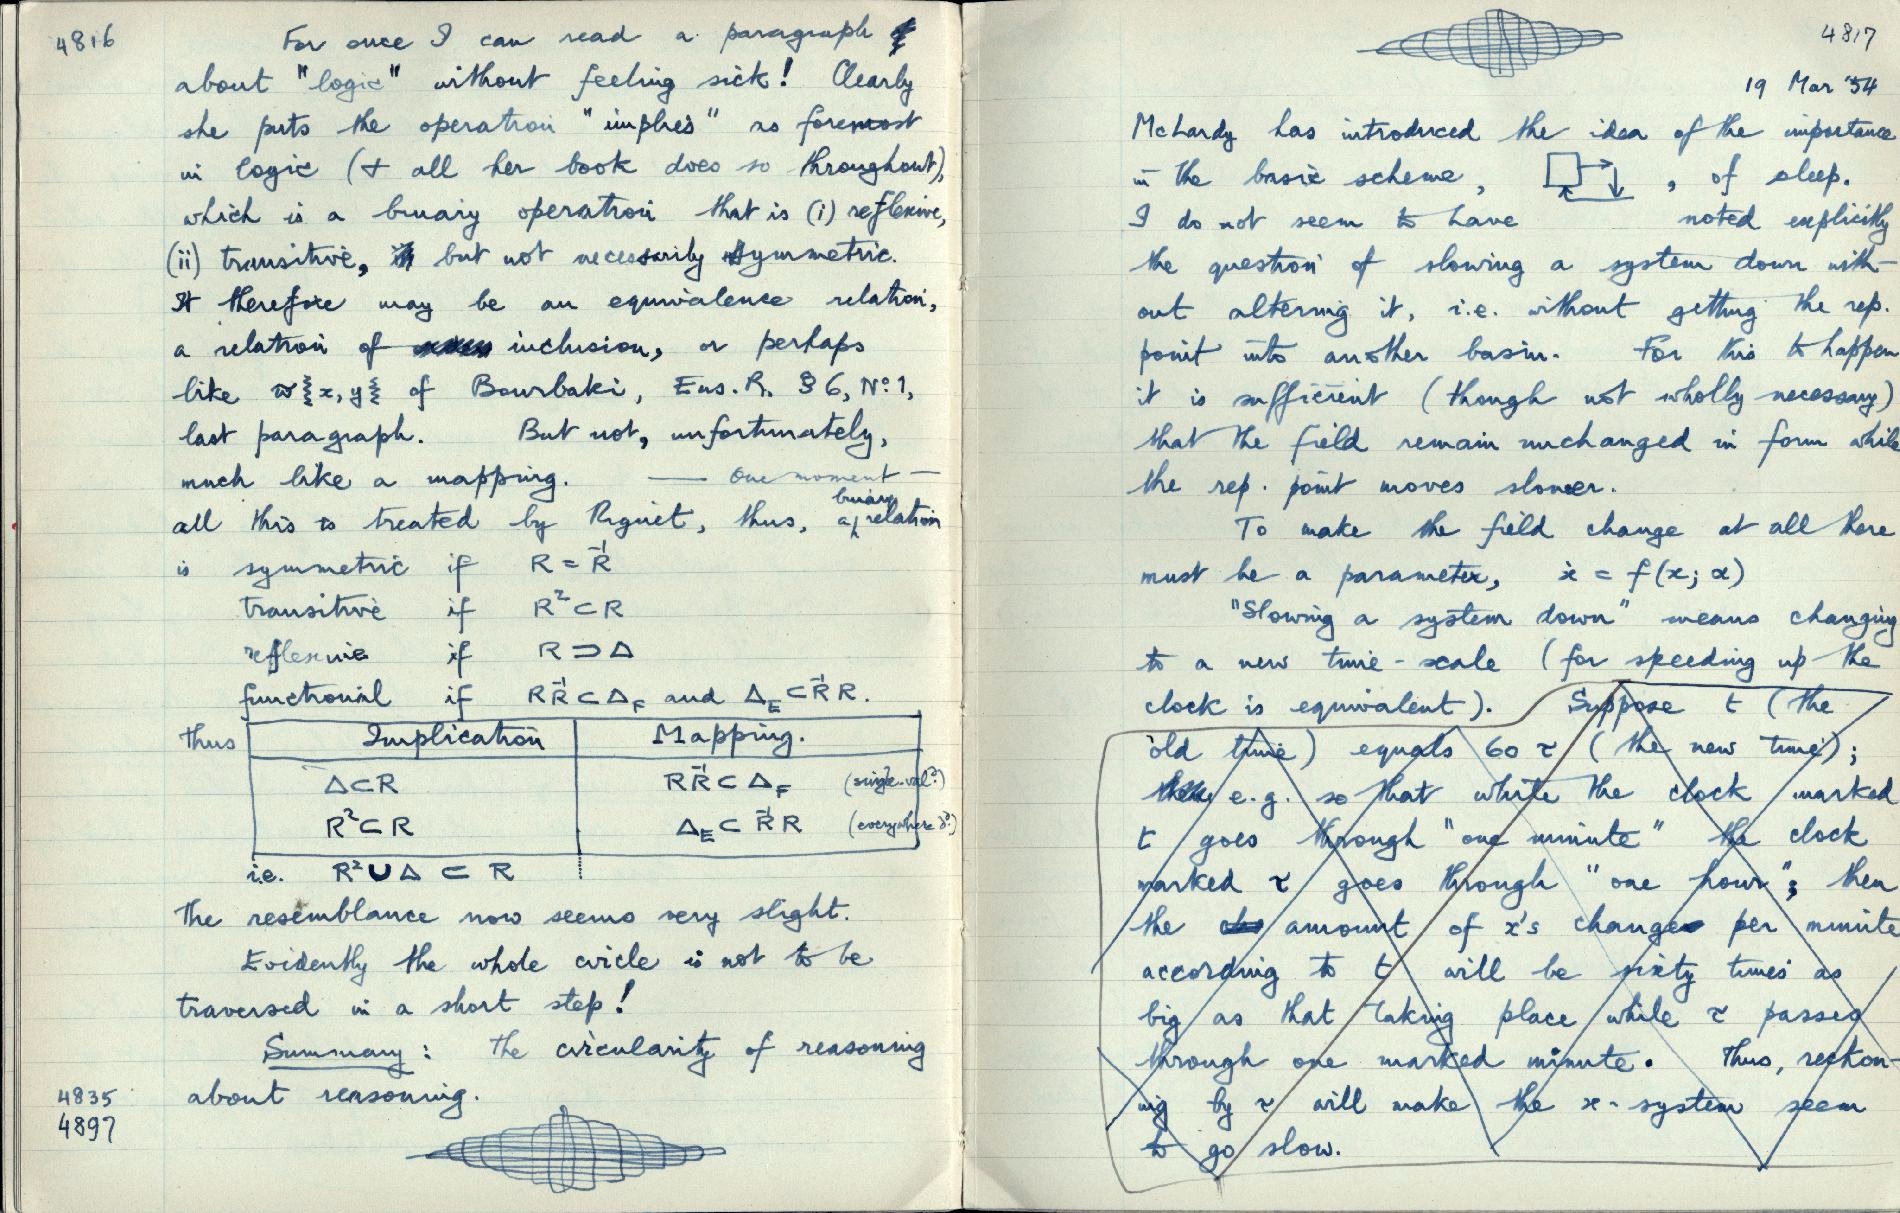 4816
For once I can read a paragraph
about "logic" without feeling sick! Clearly
she puts the operation "implies" as foremost
in logic (+ all her book does so throughout),
which is a binary operation that is (i) reflexive,
(ii) transitive, but not necessarily symmetric.
It therefore may be an equivalence relation,
a relation of inclusion, or perhaps
like ⩯{x, y} of Bourbaki, Ens. R. §6, Nº 1,
last paragraph. But not, unfortunately,
much like a mapping. — One moment —
all this is treated by Riguet, thus, a binary relation
is symmetric if R = R⁻¹
transitive if R² ⊂ R
reflexive if R ⊃ Δ
functional if RR⁻¹ ⊂ Δ_F and Δ_E ⊂ R⁻¹R.
thus Implication Mapping.
Δ ⊂ R RR⁻¹ ⊂ Δ_F (single-val?)
R² ⊂ R Δ_E ⊂ R⁻¹R (everywhere d?)
i.e. R² ∪ Δ ⊂ R
The resemblance now seems very slight.
Evidently the whole circle is not to be
traversed in a short step!
Summary: The circularity of reasoning
about reasoning.
4835
4897
4817
19 Mar '54
McHardy has introduced the idea of the importance
in the basic scheme, , of sleep.
I do not seem to have noted explicitly
the question of slowing a system down with-
out altering it, i.e. without getting the rep.
point into another basin. For this to happen
it is sufficient (though not wholly necessary)
that the field remain unchanged in form while
the rep. point moves slower.
To make the field change at all there
must be a parameter, ẋ = f(x; α)
"Slowing a system down" means changing
to a new time-scale (for speeding up the
clock is equivalent). Suppose t (the
old time) equals 60 τ (the new time);
e.g. so that while the clock marked
t goes through "one minute" the clock
marked τ goes through "one hour"; then
the amount of x's change per minute
according to t will be sixty times as
big as that taking place while τ passes
through one marked minute. Thus, reckon-
ing by τ will make the x-system seem
to go slow.